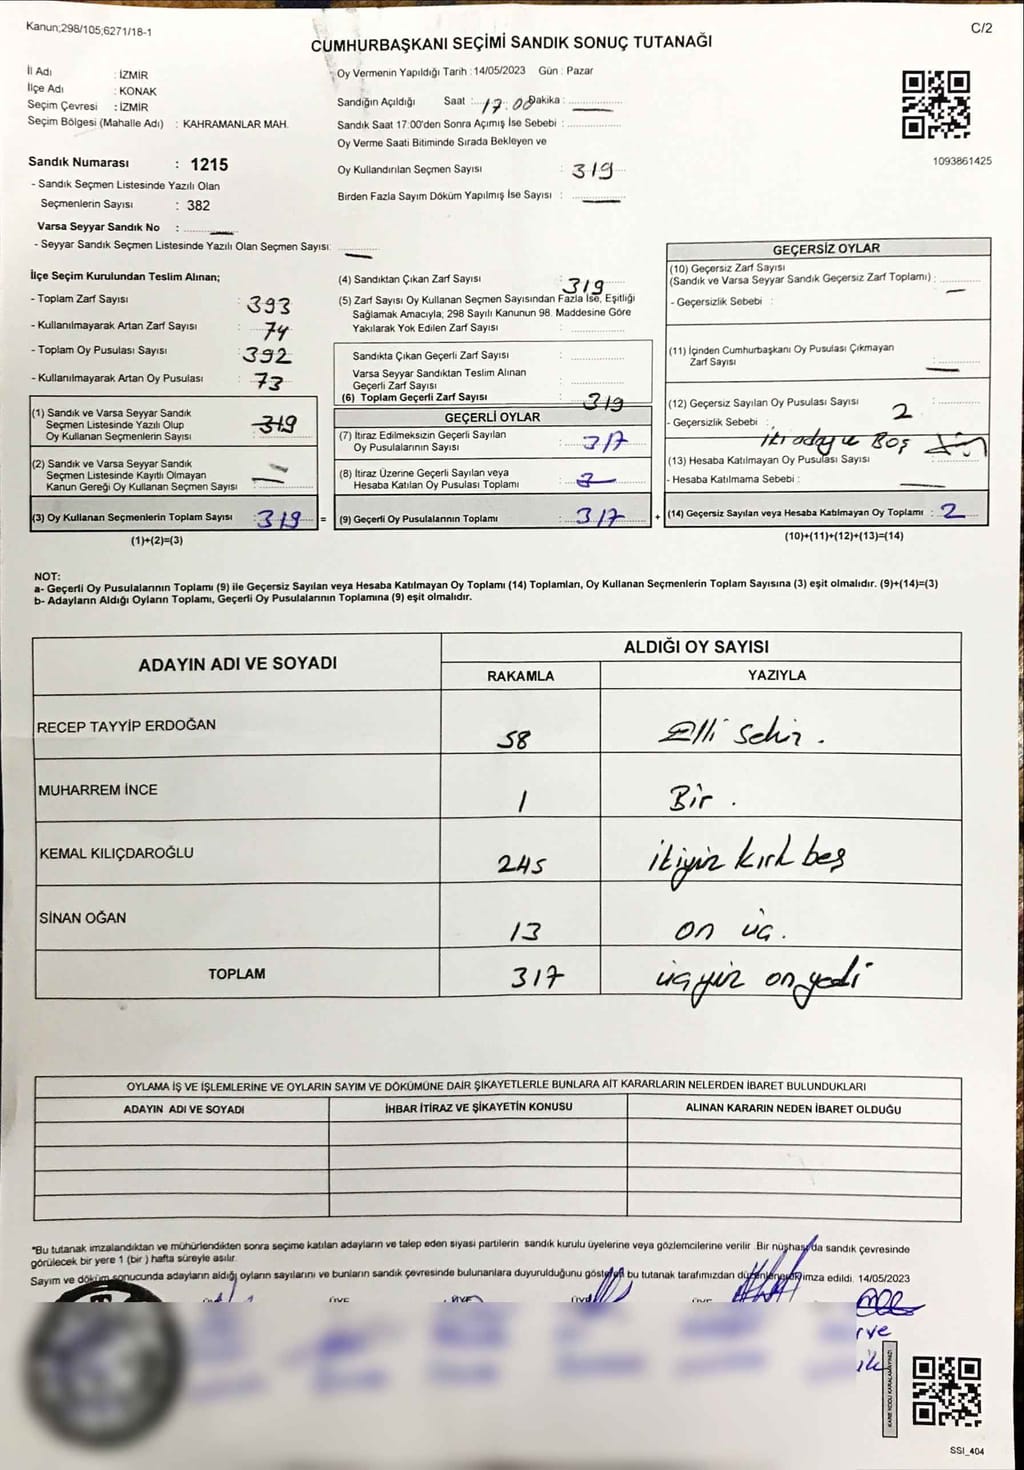 Kanun;298/105;6271/18-1
C/2
CUMHURBAŞKANI SEÇİMİ SANDIK SONUÇ TUTANAĞI
İl Adı : İZMİR
İlçe Adı : KONAK
Seçim Çevresi : İZMİR
Seçim Bölgesi (Mahalle Adı) : KAHRAMANLAR MAH.
Oy Vermenin Yapıldığı Tarih : 14/05/2023 Gün : Pazar
Sandığın Açıldığı Saat : 17:00 Dakika :
Sandık Saat 17:00'den Sonra Açımış İse Sebebi :
Oy Verme Saati Bitiminde Sırada Bekleyen ve
Oy Kullandırılan Seçmen Sayısı : 319
Birden Fazla Sayım Döküm Yapılmış İse Sayısı :
1093861425
Sandık Numarası : 1215
- Sandık Seçmen Listesinde Yazılı Olan
Seçmenlerin Sayısı : 382
Varsa Seyyar Sandık No :
- Seyyar Sandık Seçmen Listesinde Yazılı Olan Seçmen Sayısı:
İlçe Seçim Kurulundan Teslim Alınan;
- Toplam Zarf Sayısı : 393
- Kullanılmayarak Artan Zarf Sayısı : 74
- Toplam Oy Pusulası Sayısı : 392
- Kullanılmayarak Artan Oy Pusulası : 73
(1) Sandık ve Varsa Seyyar Sandık
Seçmen Listesinde Yazılı Olup
Oy Kullanan Seçmenlerin Sayısı : 319
(2) Sandık ve Varsa Seyyar Sandık
Seçmen Listesinde Kayıtlı Olmayan
Kanun Gereği Oy Kullanan Seçmen Sayısı :
(3) Oy Kullanan Seçmenlerin Toplam Sayısı : 319 =
(1)+(2)=(3)
(4) Sandıktan Çıkan Zarf Sayısı : 319
(5) Zarf Sayısı Oy Kullanan Seçmen Sayısından Fazla İse, Eşitliği
Sağlamak Amacıyla; 298 Sayılı Kanunun 98. Maddesine Göre
Yakılarak Yok Edilen Zarf Sayısı :
Sandıkta Çıkan Geçerli Zarf Sayısı :
Varsa Seyyar Sandıktan Teslim Alınan
Geçerli Zarf Sayısı :
(6) Toplam Geçerli Zarf Sayısı : 319
GEÇERLİ OYLAR
(7) İtiraz Edilmeksizin Geçerli Sayılan
Oy Pusulalarının Sayısı : 317
(8) İtiraz Üzerine Geçerli Sayılan veya
Hesaba Katılan Oy Pusulası Toplamı :
(9) Geçerli Oy Pusulalarının Toplamı : 317 +
GEÇERSİZ OYLAR
(10) Geçersiz Zarf Sayısı
(Sandık ve Varsa Seyyar Sandık Geçersiz Zarf Toplamı) :
- Geçersizlik Sebebi :
(11) İçinden Cumhurbaşkanı Oy Pusulası Çıkmayan
Zarf Sayısı :
(12) Geçersiz Sayılan Oy Pusulası Sayısı : 2
- Geçersizlik Sebebi : iki aday ve Boş
(13) Hesaba Katılmayan Oy Pusulası Sayısı :
- Hesaba Katılmama Sebebi :
(14) Geçersiz Sayılan veya Hesaba Katılmayan Oy Toplamı : 2
(10)+(11)+(12)+(13)=(14)
NOT:
a- Geçerli Oy Pusulalarının Toplamı (9) ile Geçersiz Sayılan veya Hesaba Katılmayan Oy Toplamı (14) Toplamları, Oy Kullanan Seçmenlerin Toplam Sayısına (3) eşit olmalıdır. (9)+(14)=(3)
b- Adayların Aldığı Oyların Toplamı, Geçerli Oy Pusulalarının Toplamına (9) eşit olmalıdır.
ADAYIN ADI VE SOYADI ALDIĞI OY SAYISI
RAKAMLA YAZIYLA
RECEP TAYYİP ERDOĞAN 58 Elli sekiz.
MUHARREM İNCE 1 Bir.
KEMAL KILIÇDAROĞLU 245 ikiyüz kırk beş
SİNAN OĞAN 13 on üç.
TOPLAM 317 üçyüz on yedi
OYLAMA İŞ VE İŞLEMLERİNE VE OYLARIN SAYIM VE DÖKÜMÜNE DAİR ŞİKAYETLERLE BUNLARA AİT KARARLARIN NELERDEN İBARET BULUNDUKLARI
ADAYIN ADI VE SOYADI İHBAR İTİRAZ VE ŞİKAYETİN KONUSU ALINAN KARARIN NEDEN İBARET OLDUĞU
*Bu tutanak imzalandıktan ve mühürlendikten sonra seçime katılan adayların ve talep eden siyasi partilerin sandık kurulu üyelerine veya gözlemcilerine verilir. Bir nüshası da sandık çevresinde
görülecek bir yere 1 (bir ) hafta süreyle asılır.
Sayım ve döküm sonucunda adayların aldığı oyların sayılarını ve bunların sandık çevresinde bulunanlara duyurulduğunu gösteren bu tutanak tarafımızdan düzenlenerek imza edildi. 14/05/2023
SSI_404